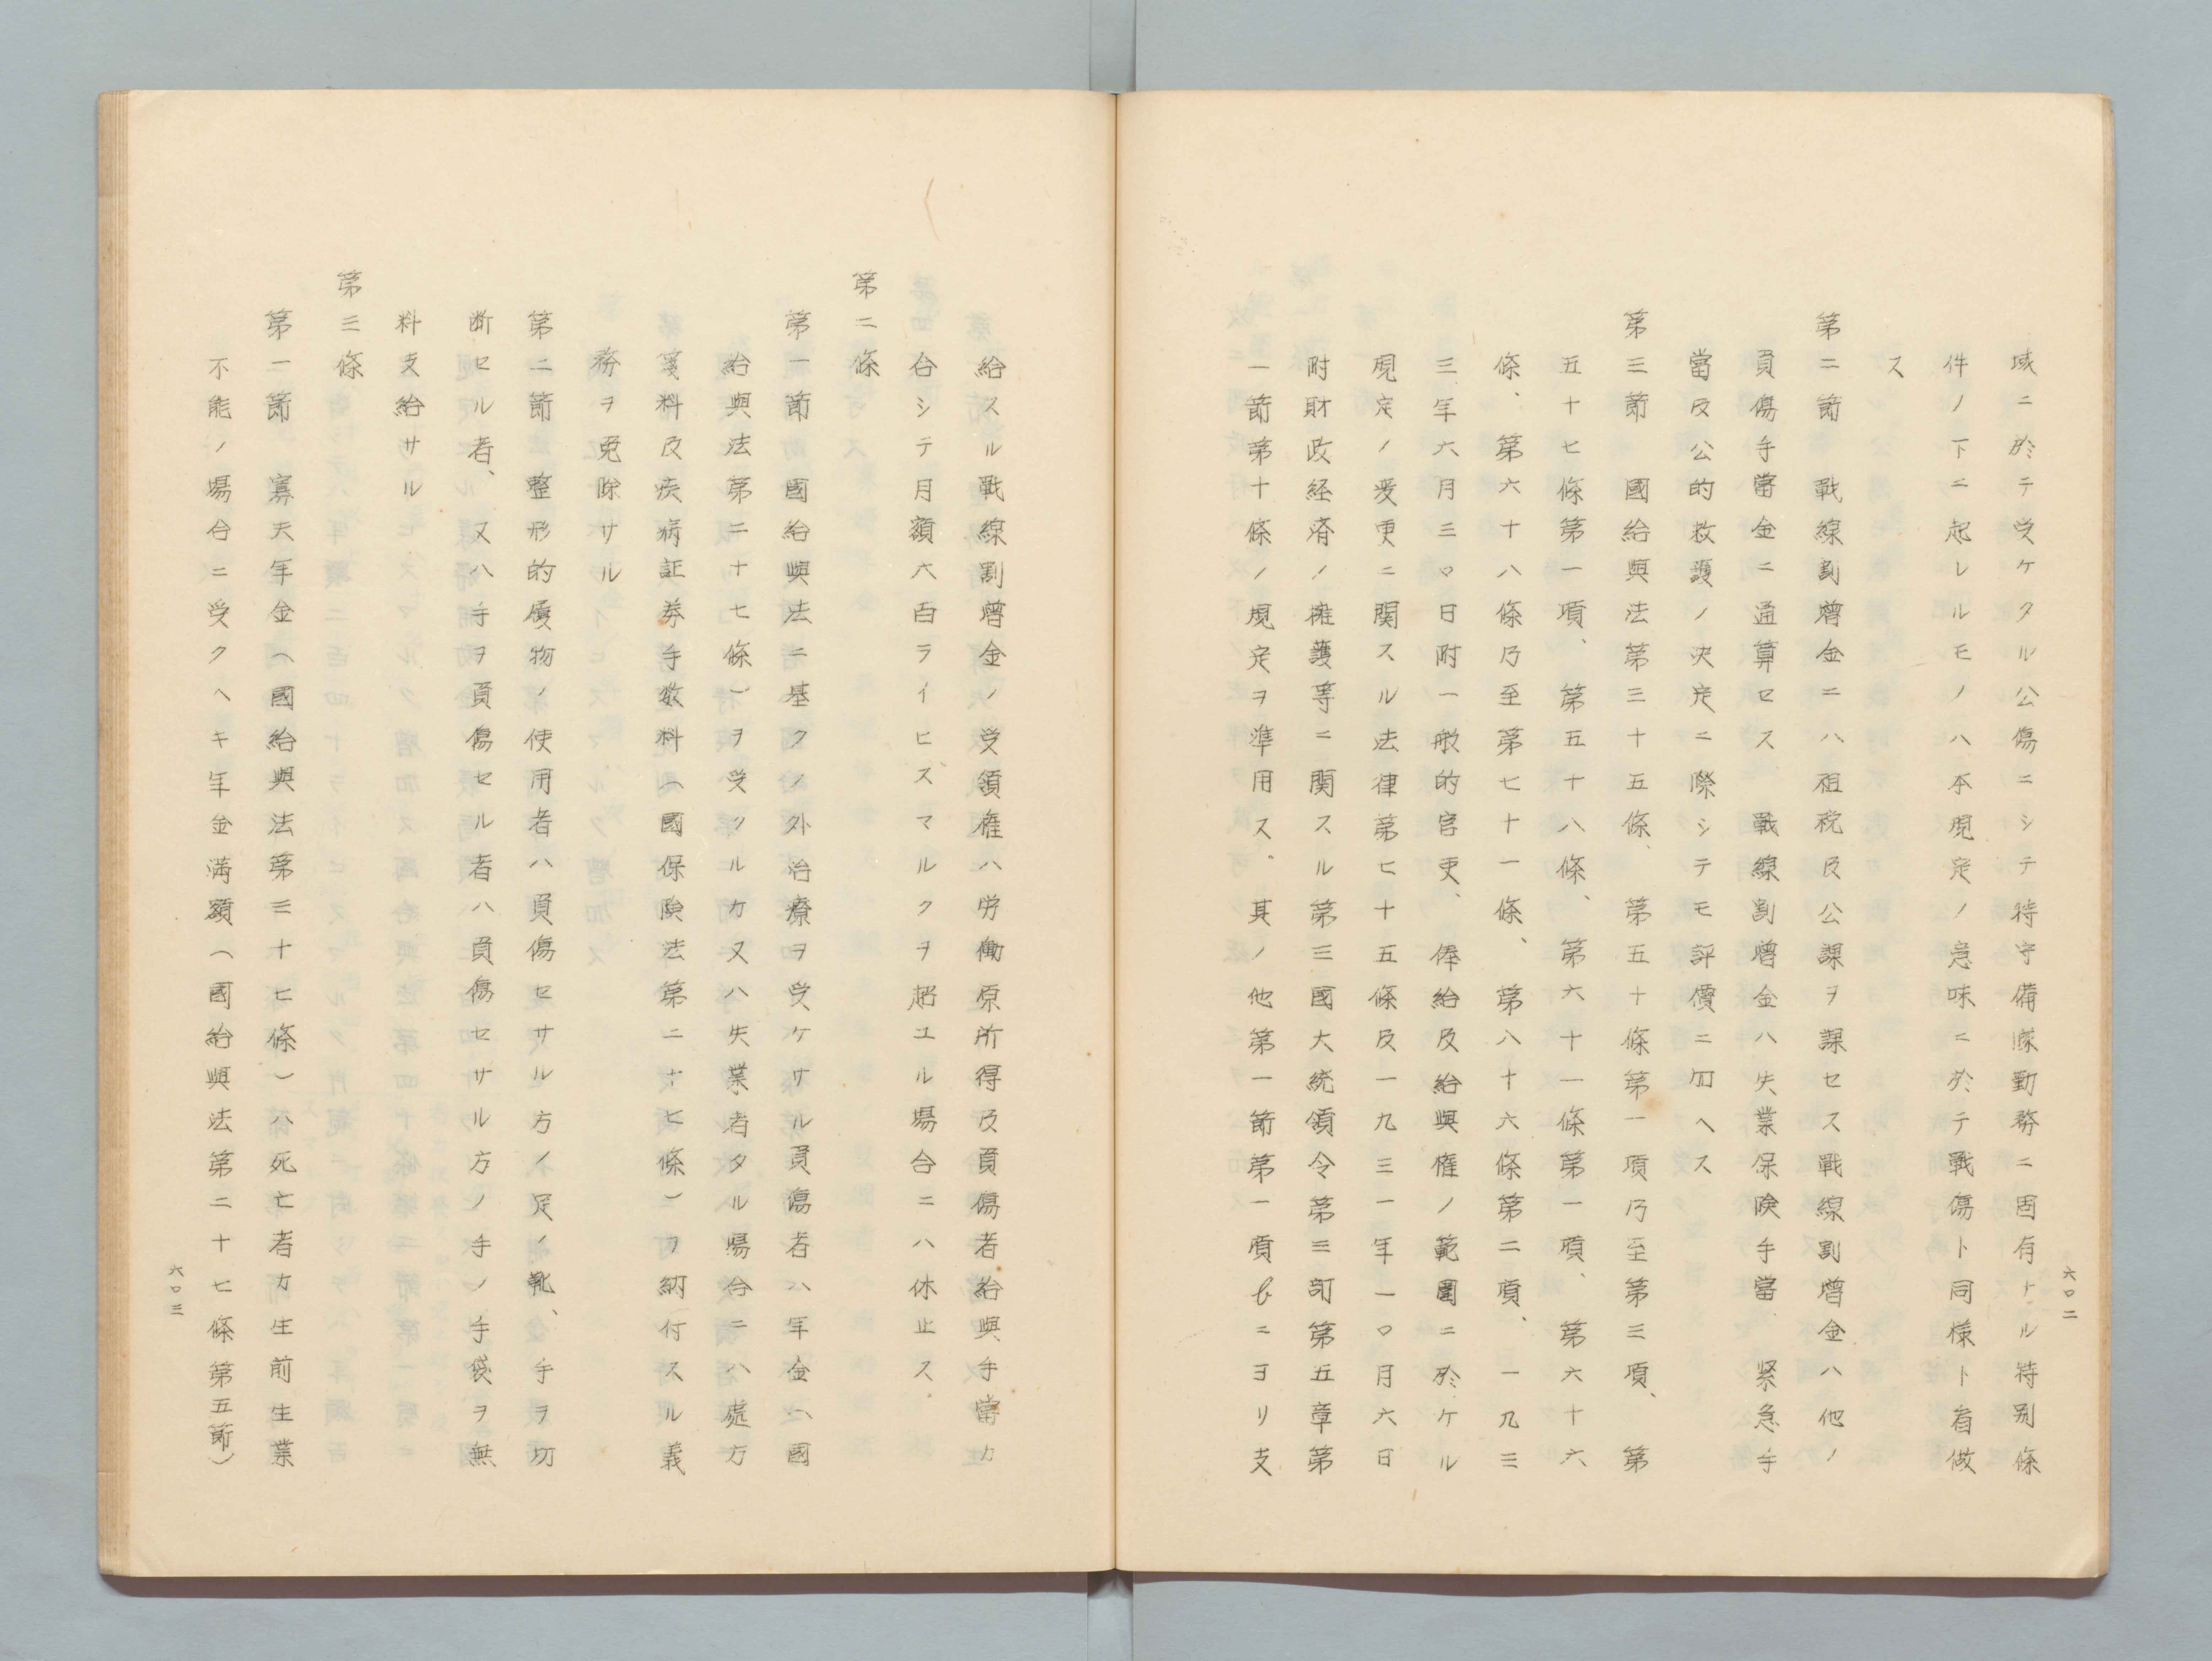 六〇二
域ニ於テ受ケタル公傷ニシテ特守備隊勤務ニ固有ナル特別條
件ノ下ニ起レルモノハ本規定ノ意味ニ於テ戰傷ト同様ト看做
ス
第二節　戰線割増金ニハ租税及公課ヲ課セス戰線割増金ハ他ノ
負傷手當金ニ通算セス　戰線割増金ハ失業保険手當、緊急手
當及公的救護ノ決定ニ際シテモ評價ニ加ヘス
第三節　國給與法第三十五條、第五十條第一項乃至第三項、第
五十七條第一項、第五十八條、第六十一條第一項、第六十六
條、第六十八條乃至第七十一條、第八十六條第二項、一九三
三年六月三〇日附一般的官吏、俸給及給與権ノ範囲ニ於ケル
規定ノ変更ニ関スル法律第七十五條及一九三一年一〇月六日
附財政経済ノ擁護等ニ関スル第三國大統領令第三部第五章第
一節第十條ノ規定ヲ準用ス。其ノ他第一節第一項bニヨリ支
給スル戰線割増金ノ受領権ハ労働原所得及負傷者給與手當カ
合シテ月額六百ライヒスマルクヲ超ユル場合ニハ休止ス。
第二條
第一節　國給與法ニ基ク外治療ヲ受ケサル負傷者ハ年金（國
給與法第二十七條）ヲ受クルカ又ハ失業者タル場合ニハ處方
箋料及疾病証券手数料（國保険法第二十七條）ヲ納付スル義
務ヲ免除サル
第二節　整形的履物ノ使用者ハ負傷セサル方ノ足ノ靴、手ヲ切
断セル者、又ハ手ヲ負傷セル者ハ負傷セサル方ノ手ノ手袋ヲ無
料支給サル
第三條
第一節　寡夫年金（國給與法第三十七條）ハ死亡者カ生前生業
不能ノ場合ニ受クヘキ年金満額（國給與法第二十七條第五節）
六〇三